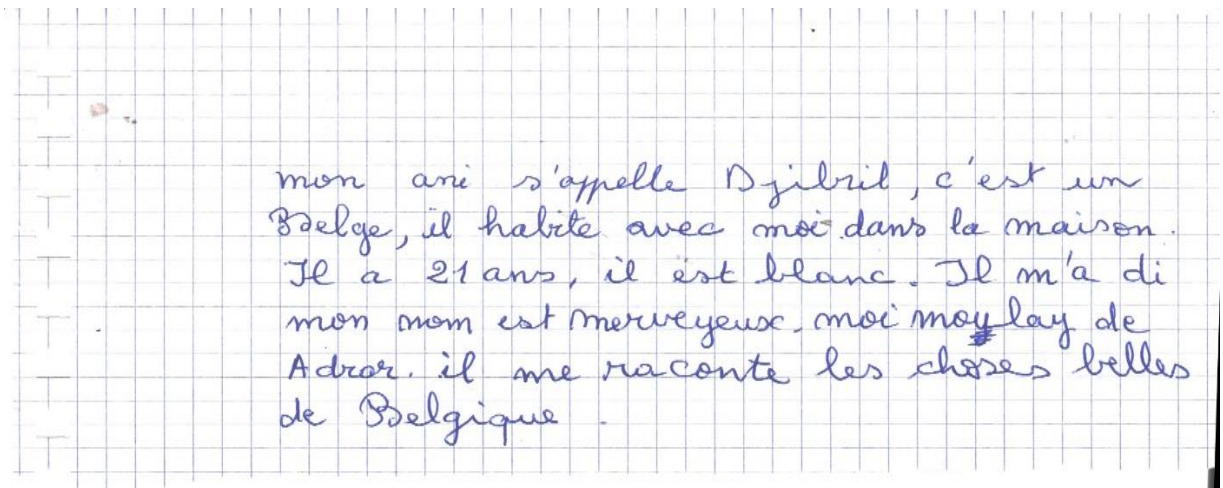 mon ani s'appelle Djibril, c'est un
Belge, il habite avec moi dans la maison.
Il a 21 ans, il est blanc. Il m'a di
mon nom est merveyeux. moi moylay de
Adrar. il me raconte les choses belles
de Belgique.